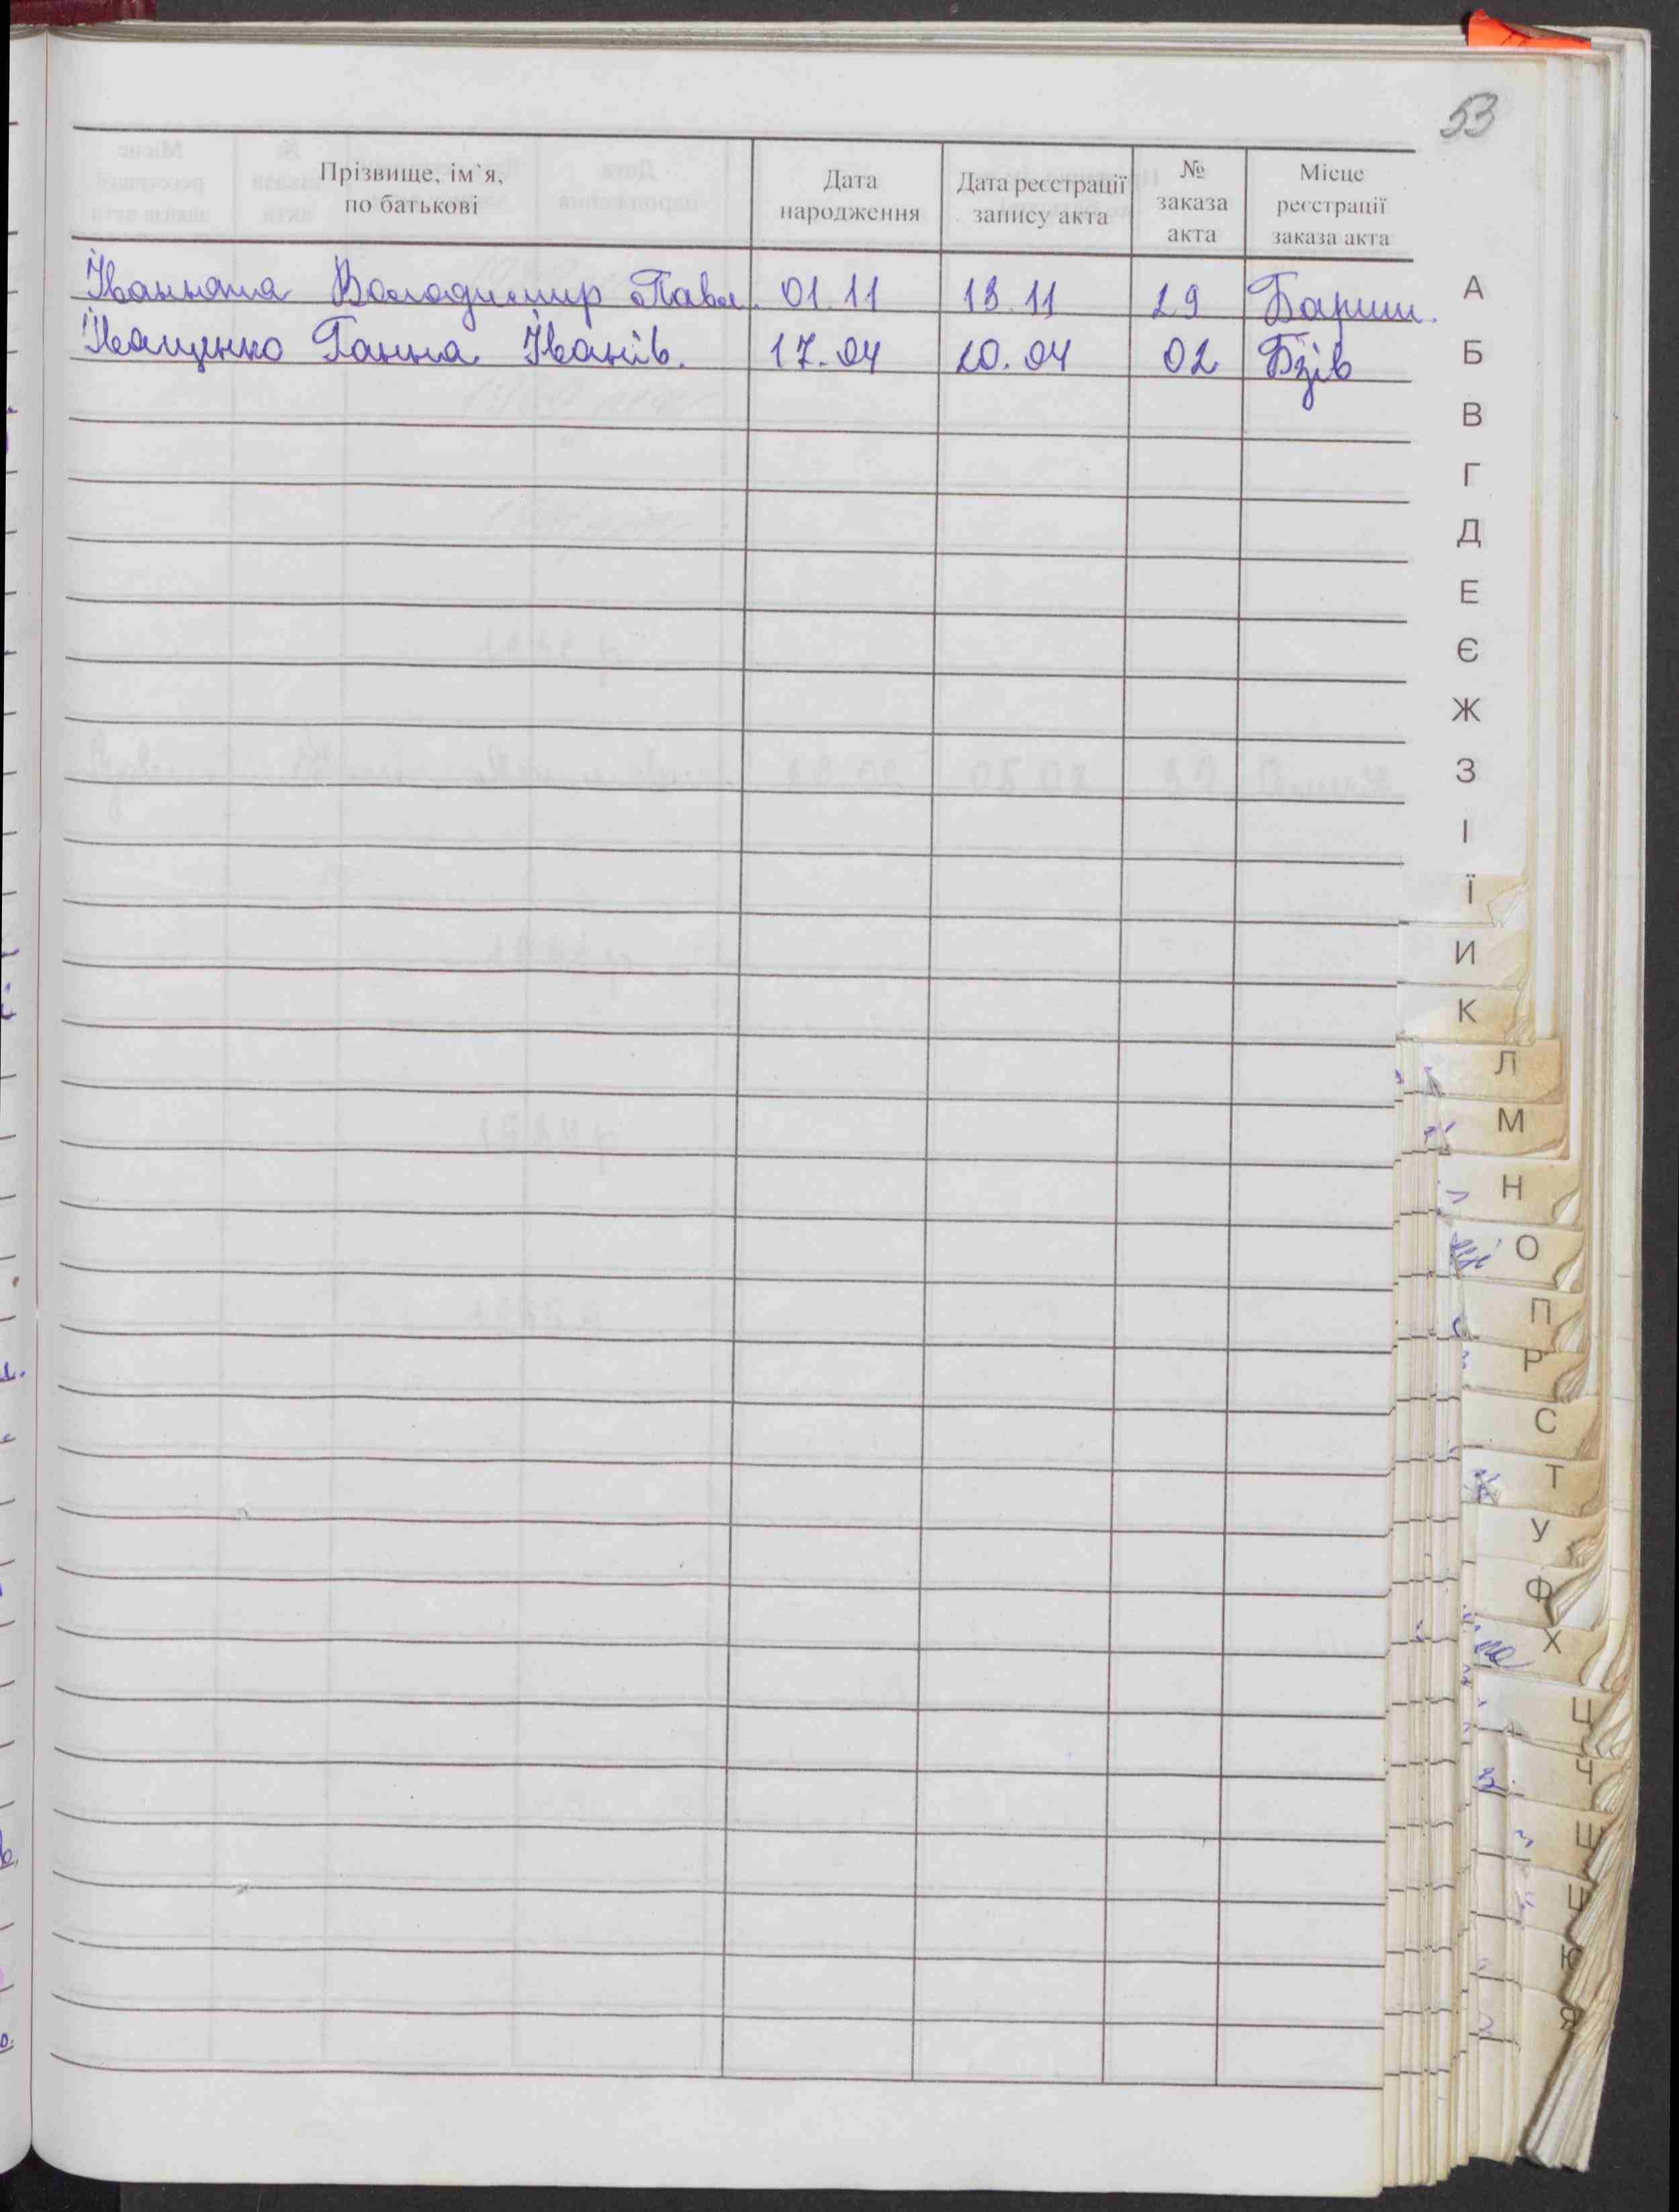 53
Прізвище, ім`я, по батькові Дата народження Дата реєстрації запису акта № заказа акта Місце реєстрації заказа акта
Володимир Павл. 01.11 13.11 29 Бариш.
Іващенко Ганна Іванів. 17.04 20.04 02 Бзів
А
Б
В
Г
Д
Е
Є
Ж
З
І
Ї
И
К
Л
М
Н
О
П
Р
С
Т
У
Ф
Х
Ц
Ч
Я